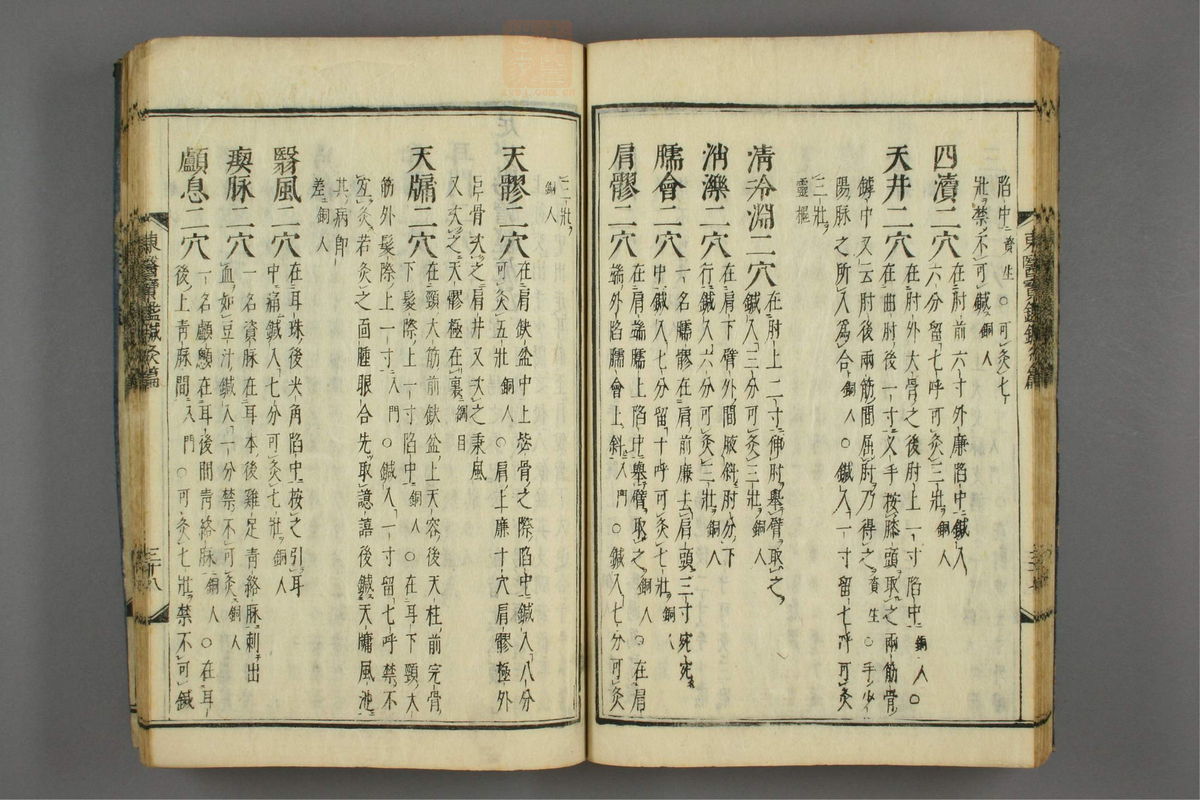 陷中資生○可灸七
壯禁不可鍼銅人
四瀆二穴在肘前六寸外廉陷中鍼入
六分留七呼可灸三壯銅人
天井二穴在肘外大骨之後肘上一寸陷中銅人○
在曲肘後一寸叉手按膝頭取之兩筋骨
鏬中又云肘後兩筋間屈肘乃得之資生○手少
陽脉之所入爲合銅人○鍼入一寸留七呼可灸
三壯
靈樞
淸冷淵二穴在肘上二寸伸肘擧臂取之
鍼入三分可灸三壯銅人
消濼二穴在肩下臂外間腋斜肘分下
行鍼入六分可灸三壯銅人
臑會二穴一名臑髎在肩前廉去肩頭三寸宛宛
中鍼入七分留十呼可灸七壯銅人
肩髎二穴在肩端臑上陷中擧臂取之銅人○在肩
端外陷臑會上斜入門○鍼入七分可灸
三壯
銅人
天髎二穴在肩缺盆中上毖骨之際陷中鍼入八分
可灸五壯銅人○肩上廉寸穴肩髎極外
巨骨次之肩井又次之秉風
又次之天髎極在裏綱目
天牖二穴在頸大筋前缺盆上天容後天柱前完骨
下髮際上一寸陷中銅人○在耳下頸大
筋外髮際上一寸入門○鍼入一寸留七呼禁不
宜灸若灸之面腫眼合先取譩譆後鍼天牖風池
其病卽
差銅人
翳風二穴在耳珠後尖角陷中按之引耳
中痛鍼入七分可灸七壯銅人
瘈脉二穴一名資脉在耳本後雞足靑絡脉刺出
血如豆汁鍼入一分禁不可灸銅人
顱息二穴一名顱顖在耳後間靑絡脉銅人○在耳
後上靑脉間入門○可灸七壯禁不可鍼
東醫寶鑑鍼灸篇
三十八